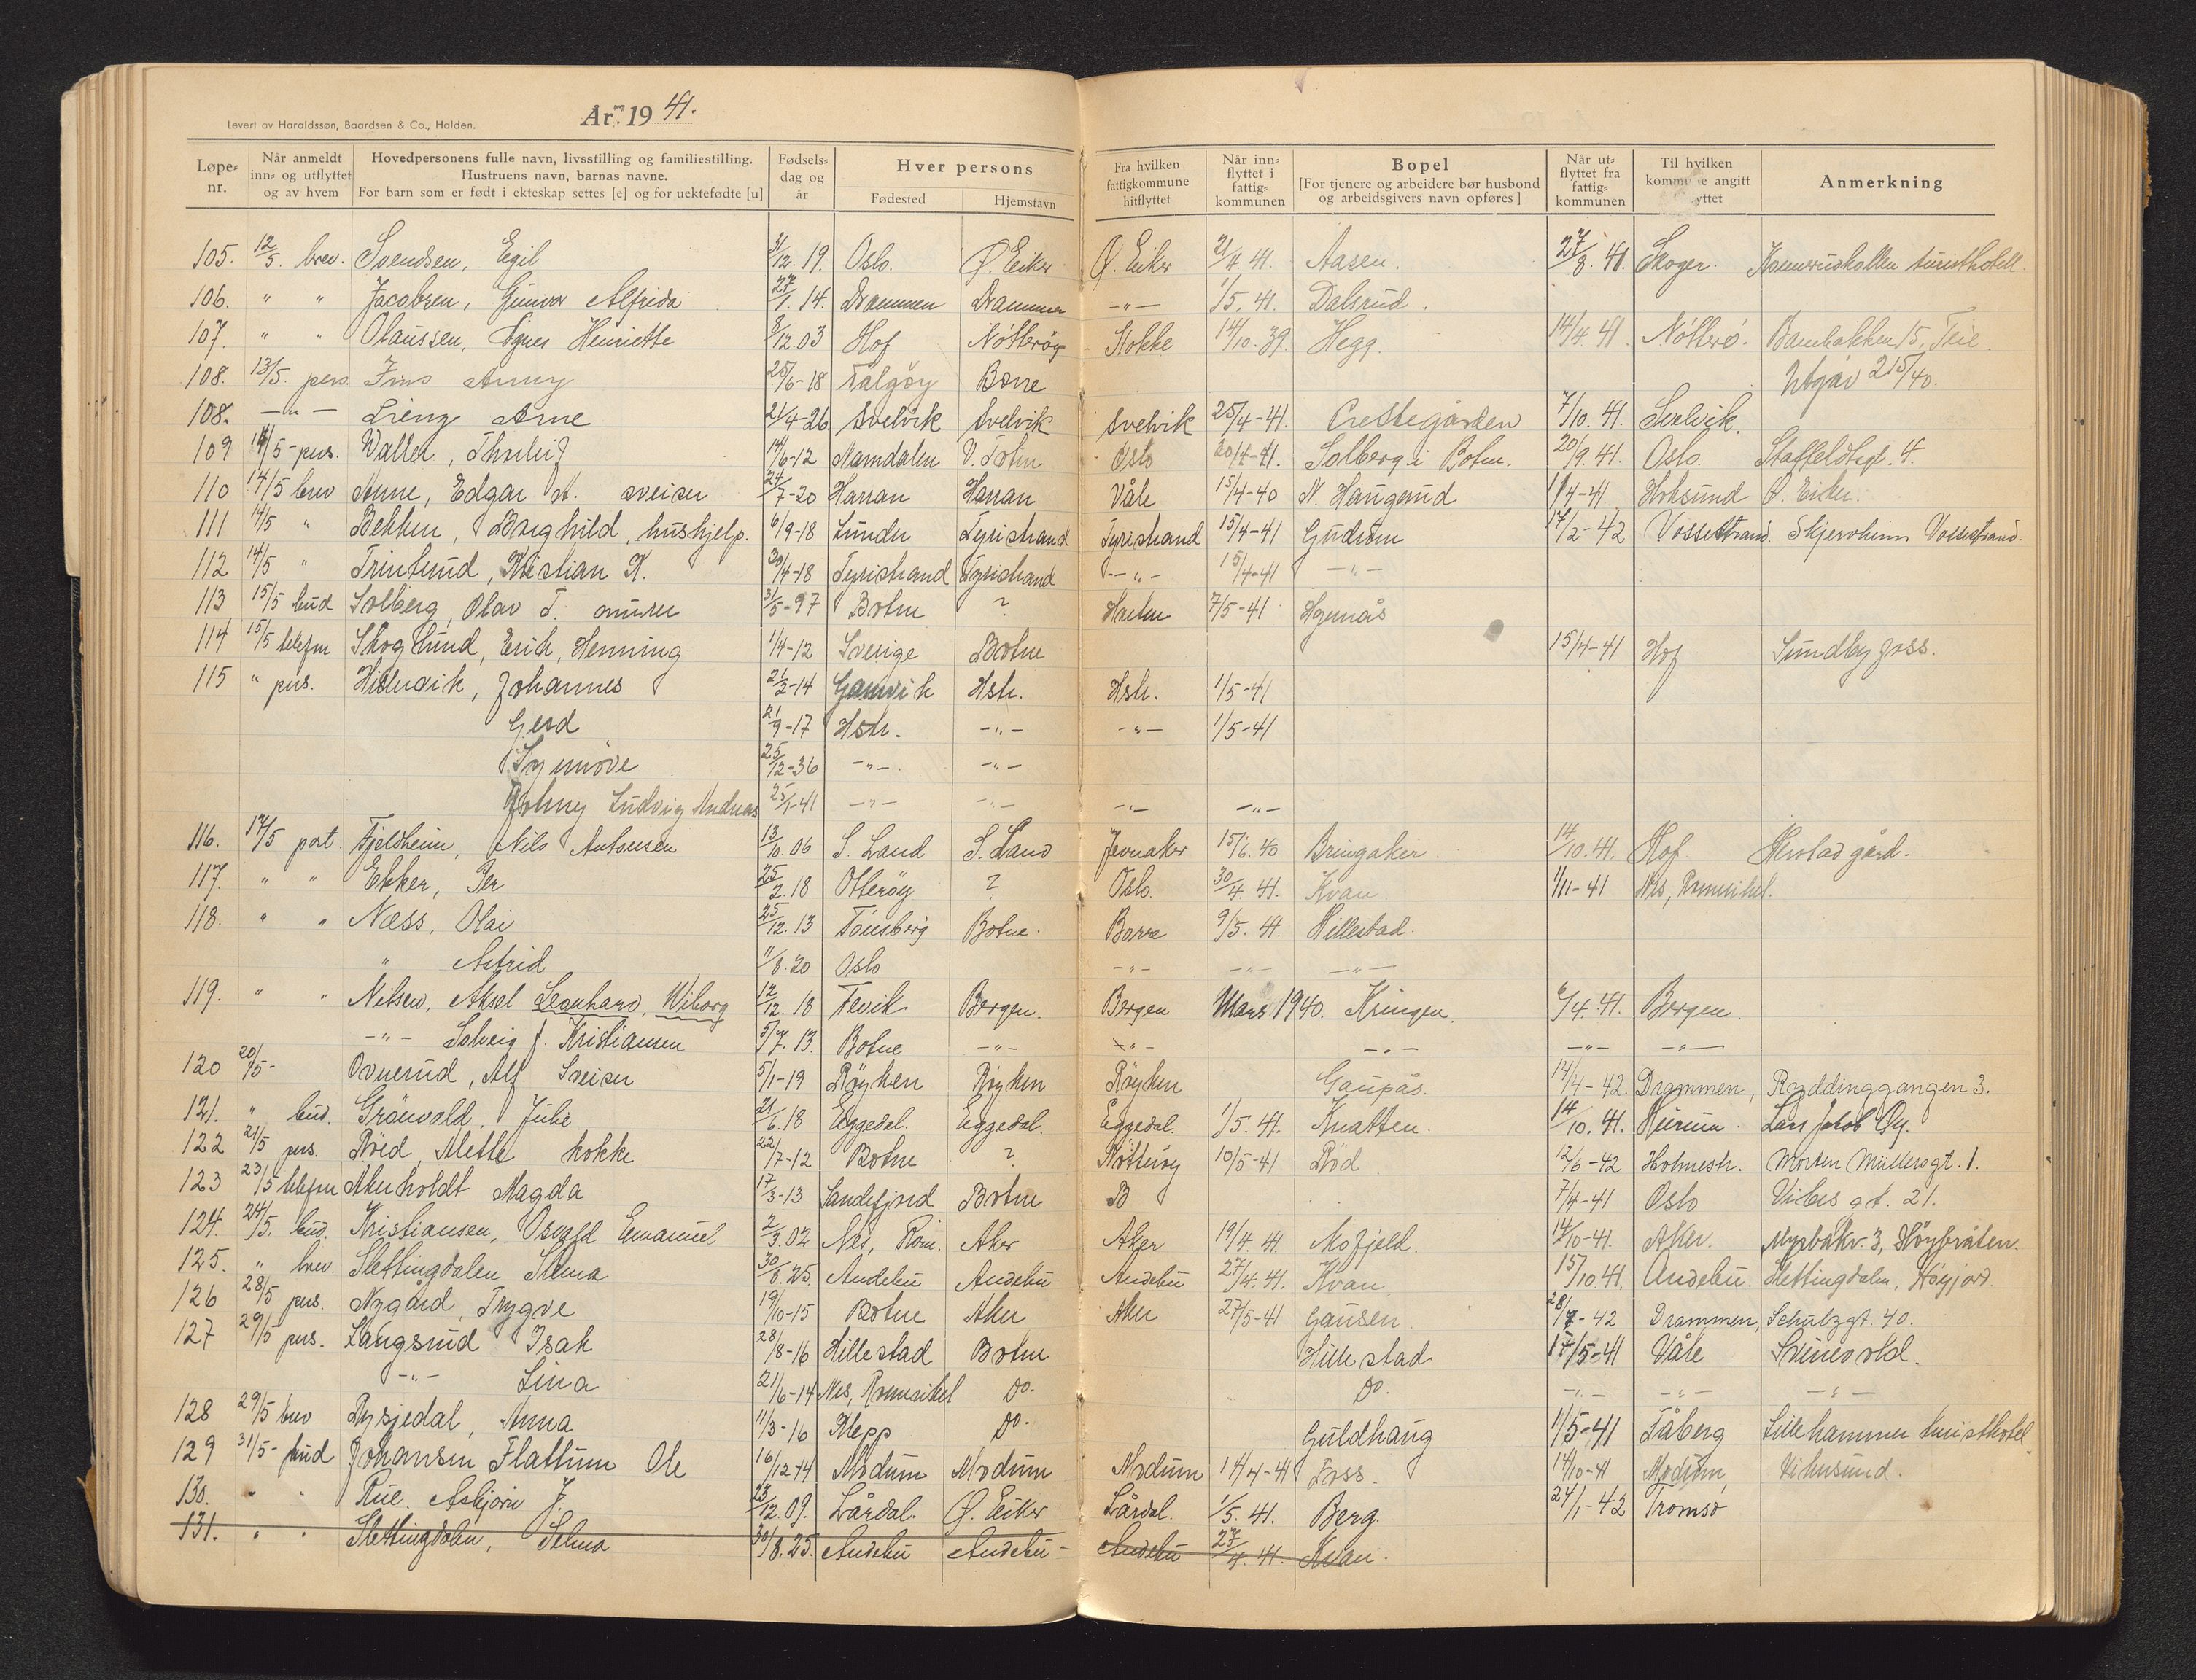 Levert av Haraldssøn, Baardsen & Co., Halden.
År 19 41.
Løpe-nr. Når anmeldt inn- og utflyttet og av hvem Hovedpersonens fulle navn, livsstilling og familiestilling. Hustruens navn, barnas navne. For barn som er født i ekteskap settes [e] og for uektefødte [u] Fødsels-dag og år Hver persons Fødested Hjemstavn Fra hvilken fattigkommune hitflyttet Når inn-flyttet i fattig-kommunen Bopel [For tjenere og arbeidere bør husbond og arbeidsgivers navn opføres] Når ut-flyttet fra fattig-kommunen Til hvilken angitt yttet Anmerkning
105. 12/5. brev. Svendsen, Egil 31/12. 19. Oslo. Ø. Eiker Ø. Eiker 21/4. 41. Aasen. 27/8. 41. Skoger. turisthotell.
106. " " Jacobsen, Gunvor Alfrida 27/1. 14. Drammen Drammen -"- 1/5. 41. Dalsrud.
107. " " Olaussen, Agnes Henriette 8/12. 03 Hof Nøtterøy Stokke 14/10. 39. Hegg. 14/4. 41. Nøtterö. 15, Teie.
108. 13/5. pers. Anny 25/6-18 Borre Utgår 215/40.
108. -"- Lieng Arne 21/4-26 Svelvik Svelvik Svelvik 25/4-41. Prestegården 7/10. 41. Svelvik.
109 14/5-pers. Waller, Thorleif 14/6-12 Namdalen V. Toten Oslo 20/4-41. Solberg i Botne. 20/9. 41. Oslo. Staffeldtsgt. 4.
110 14/5 brev Anne, Edgar A. sveiser 24/7-20 Harran Harran Våle 15/4-40 N. Haugerud 1/4-41 Hoksund Ø. Eiker.
111 14/5 " Bekken, Borghild, hushjelp. 6/9-18 Lunder Tyristrand Tyristrand 15/4-41 Gudium 17/2-42 Vossestrand. Skjervheim Vossestrand.
112 14/5 " Trintrud, Kristian K. 30/4-18 Tyristrand Tyristrand -"- 15/4-41 -"-
113 15/5 bud Solberg, Olav T. murer 31/5-97 Botne ? 7/5-41
114 15/5 telefon Skoglund, Erik, Henning 1/4-12 Sverige Botne 15/4-41 Hof Sundbyfoss.
115 " pers. Johannes 21/2-14 Gamvik Hstr. Hstr. 1/5-41
Gerd 21/9-17 Hstr. -"- -"- 1/5-41
Synnøve 25/12-36 -"- -"-
Johny Ludvig Andreas 25/1-41 -"- -"- -"- -"-
116. 17/5 post. Fjeldheim, Nils Antonsen 13/10. 06 S. Land S. Land Jevnaker 15/6. 40 Bringaker. 14/10. 41. Hof. Herstad gård.
117. " " Ekker, Per 25/2. 18 Otterøy ? Oslo. 30/4. 41. Kvan 1/11-41 Nes, Romerikel.
118. " " Næss, Olai 25/12. 13 Tønsberg Botne. Borre 9/5. 41. Hillestad.
" Astrid 11/8. 20 Oslo -"- -"- -"-
119. " " Nilsen, Aksel Leonhard, Wiborg 12/12. 18 Fevik Bergen. Bergen Mars 1940. Kringen. 6/4. 41. Bergen.
-"- Solveig f. Kristiansen 5/7. 13. Botne -"- -"- -"- -"- -"-
120 20/5- Ovnerud, Alf Sveiser 5/1-19 Røyken Røyken Røyken Gaupås. 14/4-42. Drammen, Ryddinggangen 3.
121. " bud. Grönvold, Julie 21/6. 18 Eggedal. Eggedal. Eggedal. 1/5. 41. Knatten. 14/10. 41. Hurum.
122 21/5 pers. Röed, Mette kokke 22/7-12 Botne ? Nötteröy 10/5-41 Röd 12/6-42 Holmestr. Morten Müllersgt. 1.
123 23/5 telefon Akerholdt Magda 17/3-13 Sandefjord Botne B 7/4-41 Oslo Vibes gt. 21.
124. 24/5. bud. Kristiansen, Osvald Emanuel 2/3. 02 Nes, Rom. Aker Aker 19/4. 41. Mofjeld. 14/10-41. Aker. Myrbakv. 3, Höybråten.
125. " brev. Slettingdalen Selma 30/8. 25. Andebu Andebu Andebu 27/4. 41. Kvan. 15/10 41. Andebu. Slettingdalen, Höyjord.
126 28/5 pers. Nygård, Trygve 19/10-15 Botne Aker Aker 27/5-41 Gausen. 28/7-42 Drammen, Schultzgt. 40.
127 29/5 pers. Langsrud Isak 28/8-16 Hillestad Botne Hillestad 17/5-41 Våle Svinevold.
-"- Lina 21/6-14 Nes, Romerikel Do. Do. -"- -"- -"-
128 29/5 brev Rysjedal, Anna 11/3-16 Klepp Do. Guldhaug 1/5-41 Fåberg Lillehammer turisthotel
129 31/5- bud Johansen Flattum Ole 16/12-14 Modum Modum Modum 14/4-41 Foss. 14/10-41 Modum, Vikersund.
130. " " Rue. Asbjørn J. 23/12. 09. Lårdal. Ø. Eiker Lårdal. 1/5. 41. Berg. 24/1-42 Tromsö
131. " " Slettingdalen, Selma 30/8. 25. Andebu Andebu Andebu 27/4. 41. Kvan.